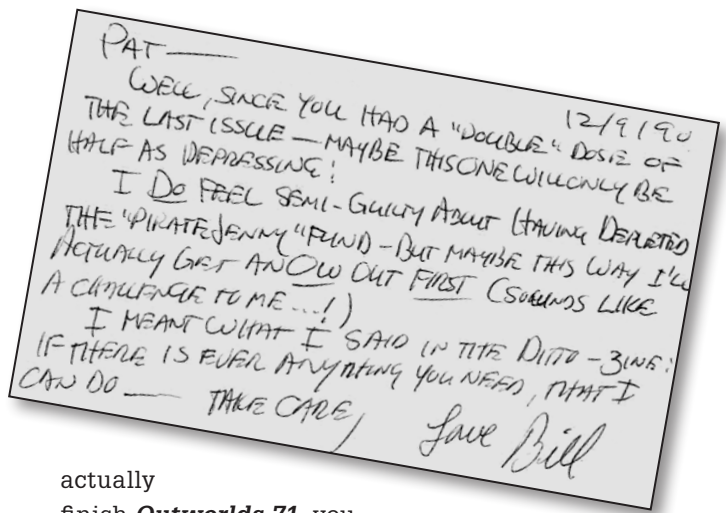 PAT —
12/9/90
WELL, SINCE YOU HAD A "DOUBLE" DOSE OF
THE LAST ISSUE — MAYBE THIS ONE WILL ONLY BE
HALF AS DEPRESSING!
I DO FEEL SEMI-GUILTY ABOUT HAVING DEPLETED
THE "PIRATE JENNY" FUND – BUT MAYBE THIS WAY I'LL
ACTUALLY GET AN OW OUT FIRST (SOUNDS LIKE
A CHALLENGE TO ME...!)
I MEANT WHAT I SAID IN THE DITTO-ZINE:
IF THERE IS EVER ANYTHING YOU NEED, THAT I
CAN DO — TAKE CARE,
Love Bill
actually
finish Outworlds 71, you